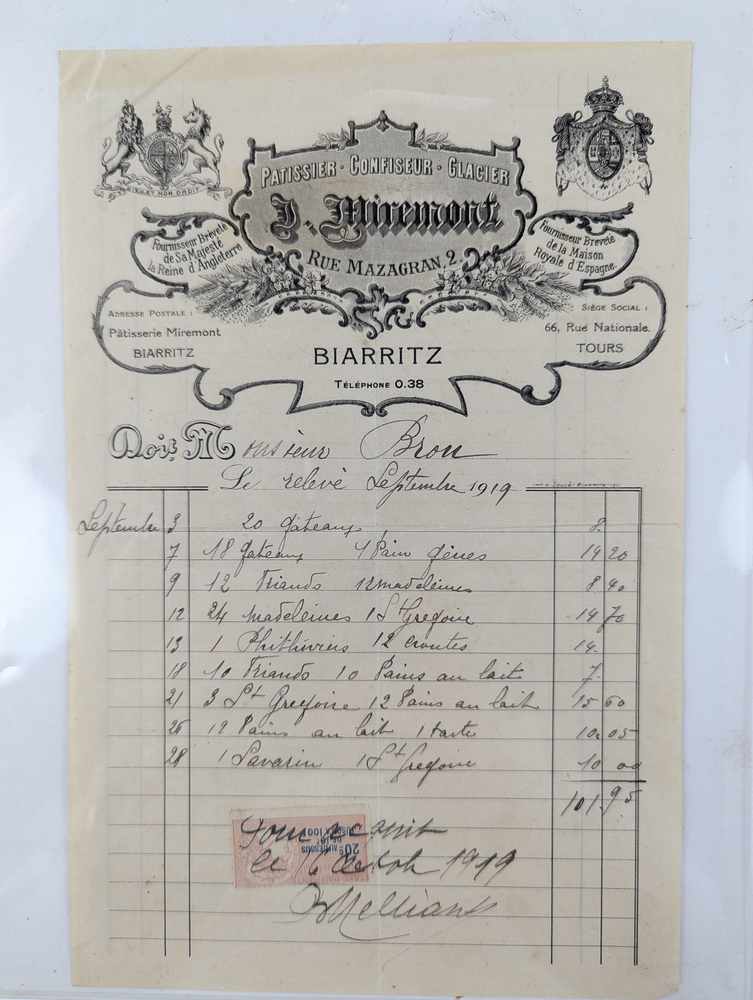 PATISSIER - CONFISEUR - GLACIER
J. Miremont
RUE MAZAGRAN, 2
Fournisseur Breveté
de Sa Majesté
la Reine d'Angleterre
Fournisseur Breveté
de la Maison
Royale d'Espagne.
ADRESSE POSTALE :
Pâtisserie Miremont
BIARRITZ
SIÈGE SOCIAL :
66, Rue Nationale.
TOURS
BIARRITZ
TÉLÉPHONE 0.38
Doit Monsieur Brou
Le relevé Septembre 1919
Septembre 3 20 gâteaux 8.
7 18 gateaux 1 Pain gênes 14 20
9 12 Friands 12 madeleines 8 40
12 24 madeleines 1 St Gregoire 14 70
13 1 Phithiviers 12 croutes 14.
18 10 Friands 10 Pains au lait 7.
21 3 St Gregoire 12 Pains au lait 15 60
26 12 Pains au lait 1 tarte 10 05
28 1 Savarin 1 St Gregoire 10 00
101.95
Pour acquit
le 16 Octob 1919